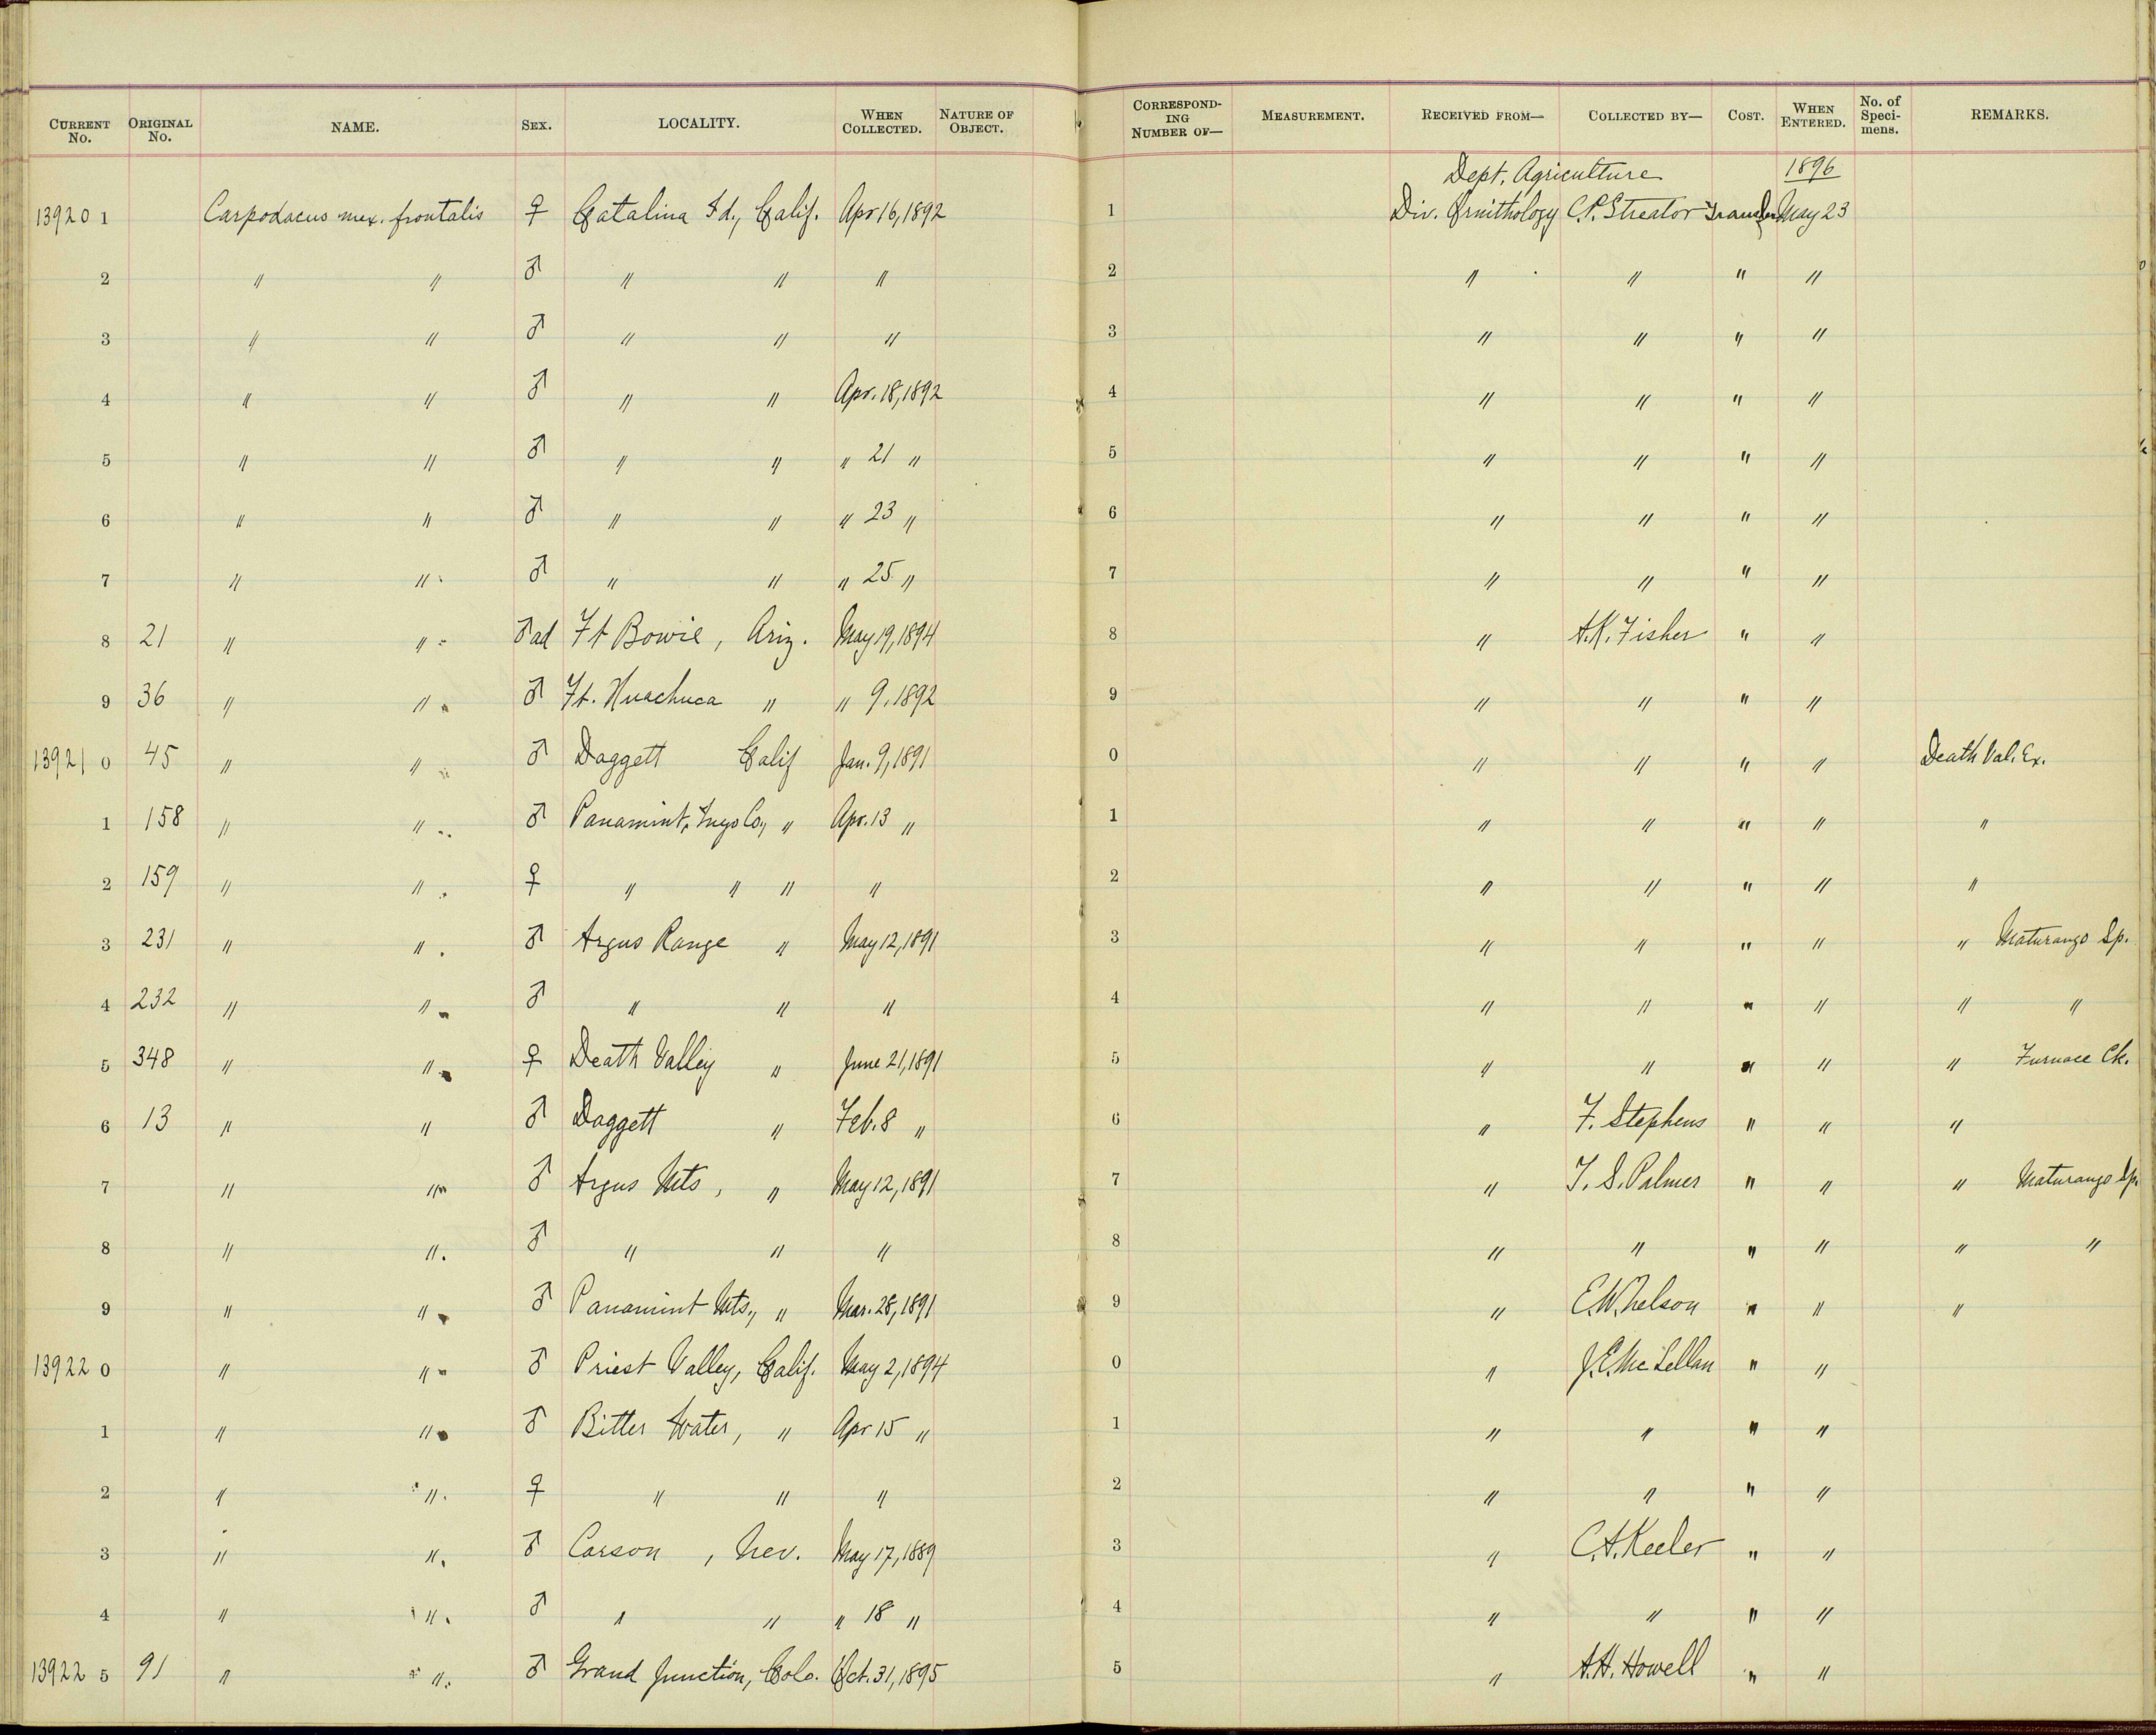 CURRENT No. ORIGINAL No. NAME. SEX. LOCALITY. WHEN COLLECTED. NATURE OF OBJECT. CORRESPONDING NUMBER OF— MEASUREMENT. RECEIVED FROM— COLLECTED BY— COST. WHEN ENTERED. No. of Specimens. REMARKS.
Dept. Agriculture 1896
13920 1 Carpodacus mex. frontalis ♀ Catalina Id., Calif. Apr 16, 1892 1 Div. Ornithology C.P. Streator Transfer May 23
2 " " ♂ " " " 2 " " " "
3 " " ♂ " " " 3 " " " "
4 " " ♂ " " Apr. 18, 1892 4 " " " "
5 " " ♂ " " " 21 " 5 " " " "
6 " " ♂ " " " 23 " 6 " " " "
7 " " ♂ " " " 25 " 7 " " " "
8 21 " " ♂ ad Ft Bowie, Ariz. May 19, 1894 8 " A.K. Fisher " "
9 36 " " ♂ Ft. Huachuca " " 9, 1892 9 " " " "
13921 0 45 " " ♂ Daggett Calif Jan. 9, 1891 0 " " " " Death Val. Ex.
1 158 " " ♂ Panamint, Inyo Co., " Apr. 13 " 1 " " " " "
2 159 " " ♀ " " " " 2 " " " " "
3 231 " " ♂ Argus Range " May 12, 1891 3 " " " " " Maturango Sp.
4 232 " " ♂ " " " 4 " " " " " "
5 348 " " ♀ Death Valley " June 21, 1891 5 " " " " " Furnace Ck.
6 13 " " ♂ Daggett " Feb. 8 " 6 " F. Stephens " " "
7 " " ♂ Argus Mts, " May 12, 1891 7 " T. S. Palmer " " " Maturango Sp.
8 " " ♂ " " " 8 " " " " " "
9 " " ♂ Panamint Mts., " Mar. 28, 1891 9 " E.W. Nelson " " "
13922 0 " " ♂ Priest Valley, Calif. May 2, 1894 0 " J.E. McLellan " "
1 " " ♂ Bitter Water, " Apr 15 " 1 " " " "
2 " " ♀ " " " 2 " " " "
3 " " ♂ Carson, Nev. May 17, 1889 3 " C.A. Keeler " "
4 " " ♂ " " " 18 " 4 " " " "
13922 5 91 " " ♂ Grand Junction, Colo. Oct. 31, 1895 5 " A.H. Howell " "